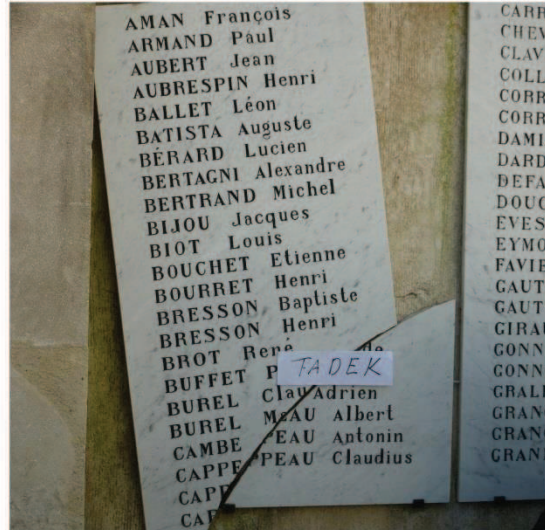 AMAN François
ARMAND Paul
AUBERT Jean
AUBRESPIN Henri
BALLET Léon
BATISTA Auguste
BÉRARD Lucien
BERTAGNI Alexandre
BERTRAND Michel
BIJOU Jacques
BIOT Louis
BOUCHET Etienne
BOURRET Henri
BRESSON Baptiste
BRESSON Henri
BROT René de
BUFFET P
TADEK
BUREL Clau Adrien
BUREL M AU Albert
CAMBE PEAU Antonin
CAPPE PPEAU Claudius
CAPP
CAP
CARR
CHEV
CLAV
COLL
CORR
CORR
DAMI
DARD
DEFA
DOUC
EVES
EYMO
FAVIE
GAUT
GAUT
GIRAU
GONN
GONN
GRAL
GRAN
GRAN
GRAN